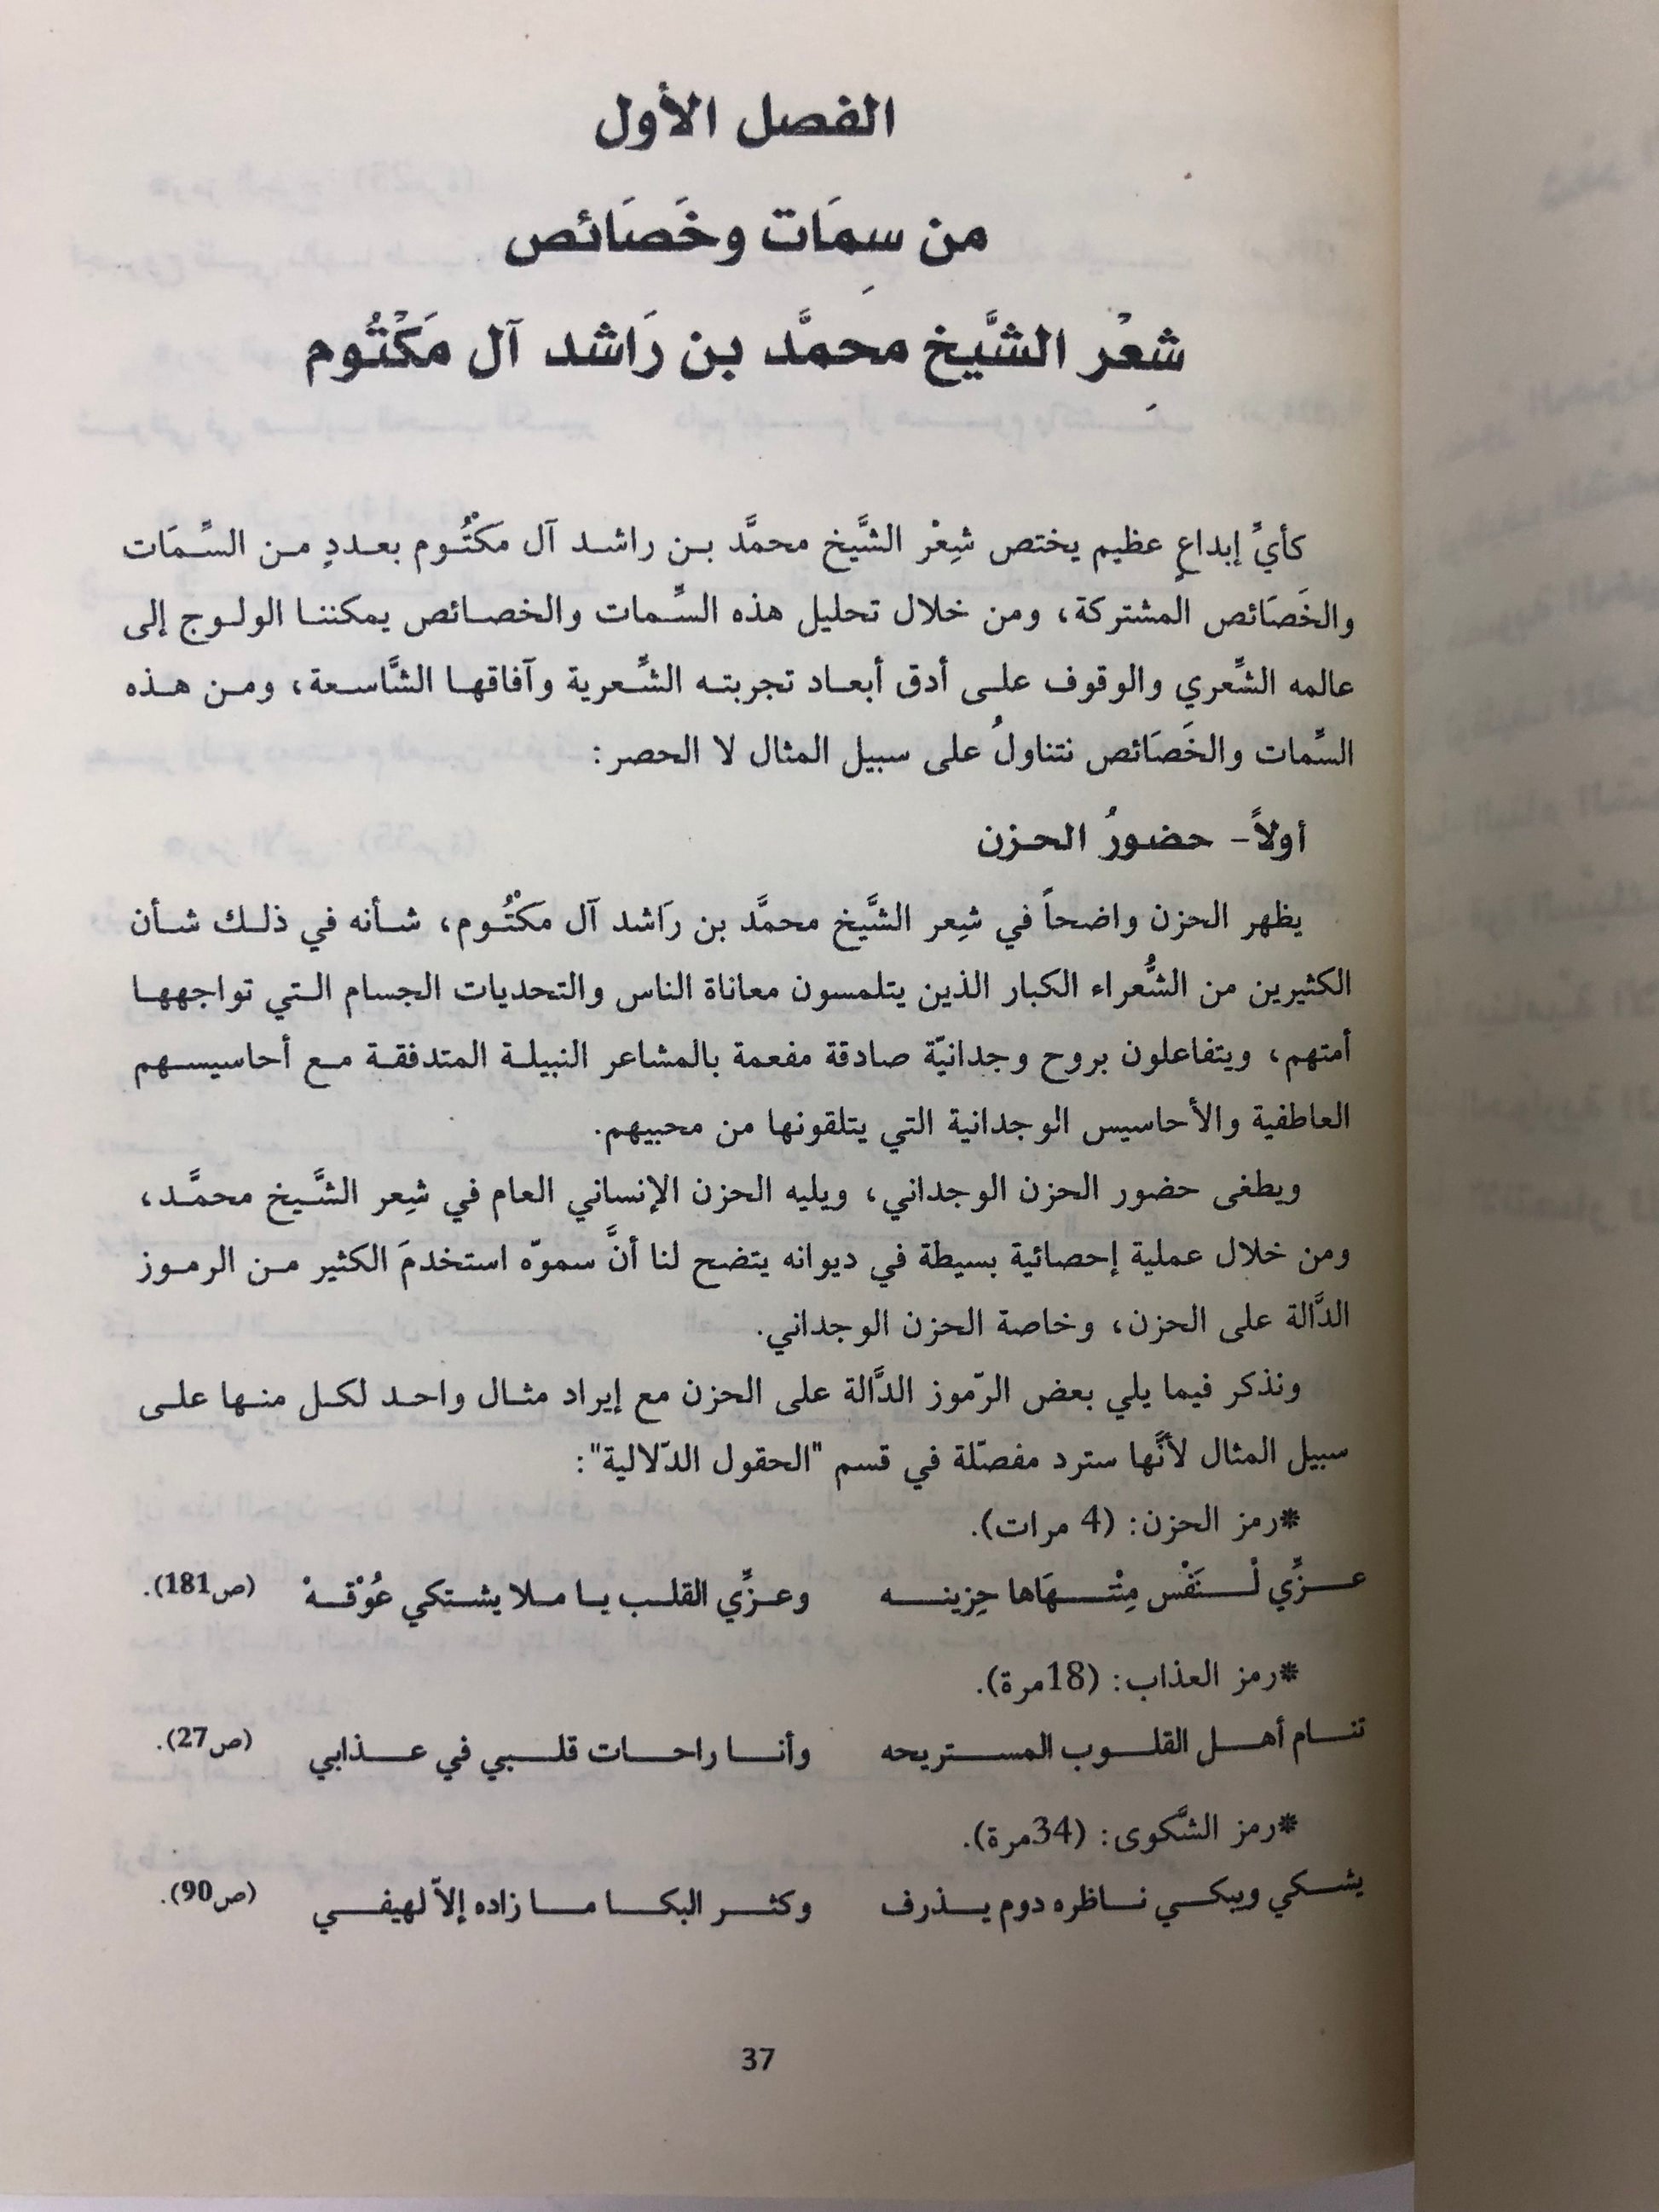 الفصل الأول
من سِمَات وخَصَائص
شِعْر الشَّيخ محمَّد بن رَاشد آل مَكْتُوم
كأيِّ إبداعٍ عظيم يختص شِعْر الشَّيخ محمَّد بن راشد آل مكْتُوم بعددٍ من السِّمَات
والخَصَائص المشتركة، ومن خلال تحليل هذه السِّمات والخصائص يمكننا الولوج إلى
عالمه الشِّعري والوقوف على أدق أبعاد تجربته الشِّعرية وآفاقها الشَّاسعة، ومن هذه
السِّمات والخَصَائص نتناولُ على سبيل المثال لا الحصر:
أولاً- حضورُ الحزن
يظهر الحزن واضحاً في شِعر الشَّيخ محمَّد بن رَاشد آل مكْتُوم، شأنه في ذلك شأن
الكثيرين من الشُّعراء الكبار الذين يتلمسون معاناة الناس والتحديات الجسام التي تواجهها
أمتهم، ويتفاعلون بروح وجدانيّة صادقة مفعمة بالمشاعر النبيلة المتدفقة مع أحاسيسهم
العاطفية والأحاسيس الوجدانية التي يتلقونها من محبيهم.
ويطغى حضور الحزن الوجداني، ويليه الحزن الإنساني العام في شِعر الشَّيخ محمَّد،
ومن خلال عملية إحصائية بسيطة في ديوانه يتضح لنا أنَّ سموّه استخدمَ الكثير من الرموز
الدَّالة على الحزن، وخاصة الحزن الوجداني.
ونذكر فيما يلي بعض الرّموز الدَّالة على الحزن مع إيراد مثال واحد لكل منها على
سبيل المثال لأنَّها سترد مفصّلة في قسم "الحقول الدّلالية":
*رمز الحزن: (4 مرات).
عزِّي لْنَفْس مِنْتهَاها حِزينه وعزِّي القلب يا ملا يشتكي عُوْقهْ (ص181).
*رمز العذاب: (18مرة).
تنام أهل القلوب المستريحه وأنا راحات قلبي في عذابي (ص27).
*رمز الشَّكوى: (34مرة).
يشكي ويبكي ناظره دوم يذرف وكثر البكا ما زاده إلاّ لهيفي (ص90).
37